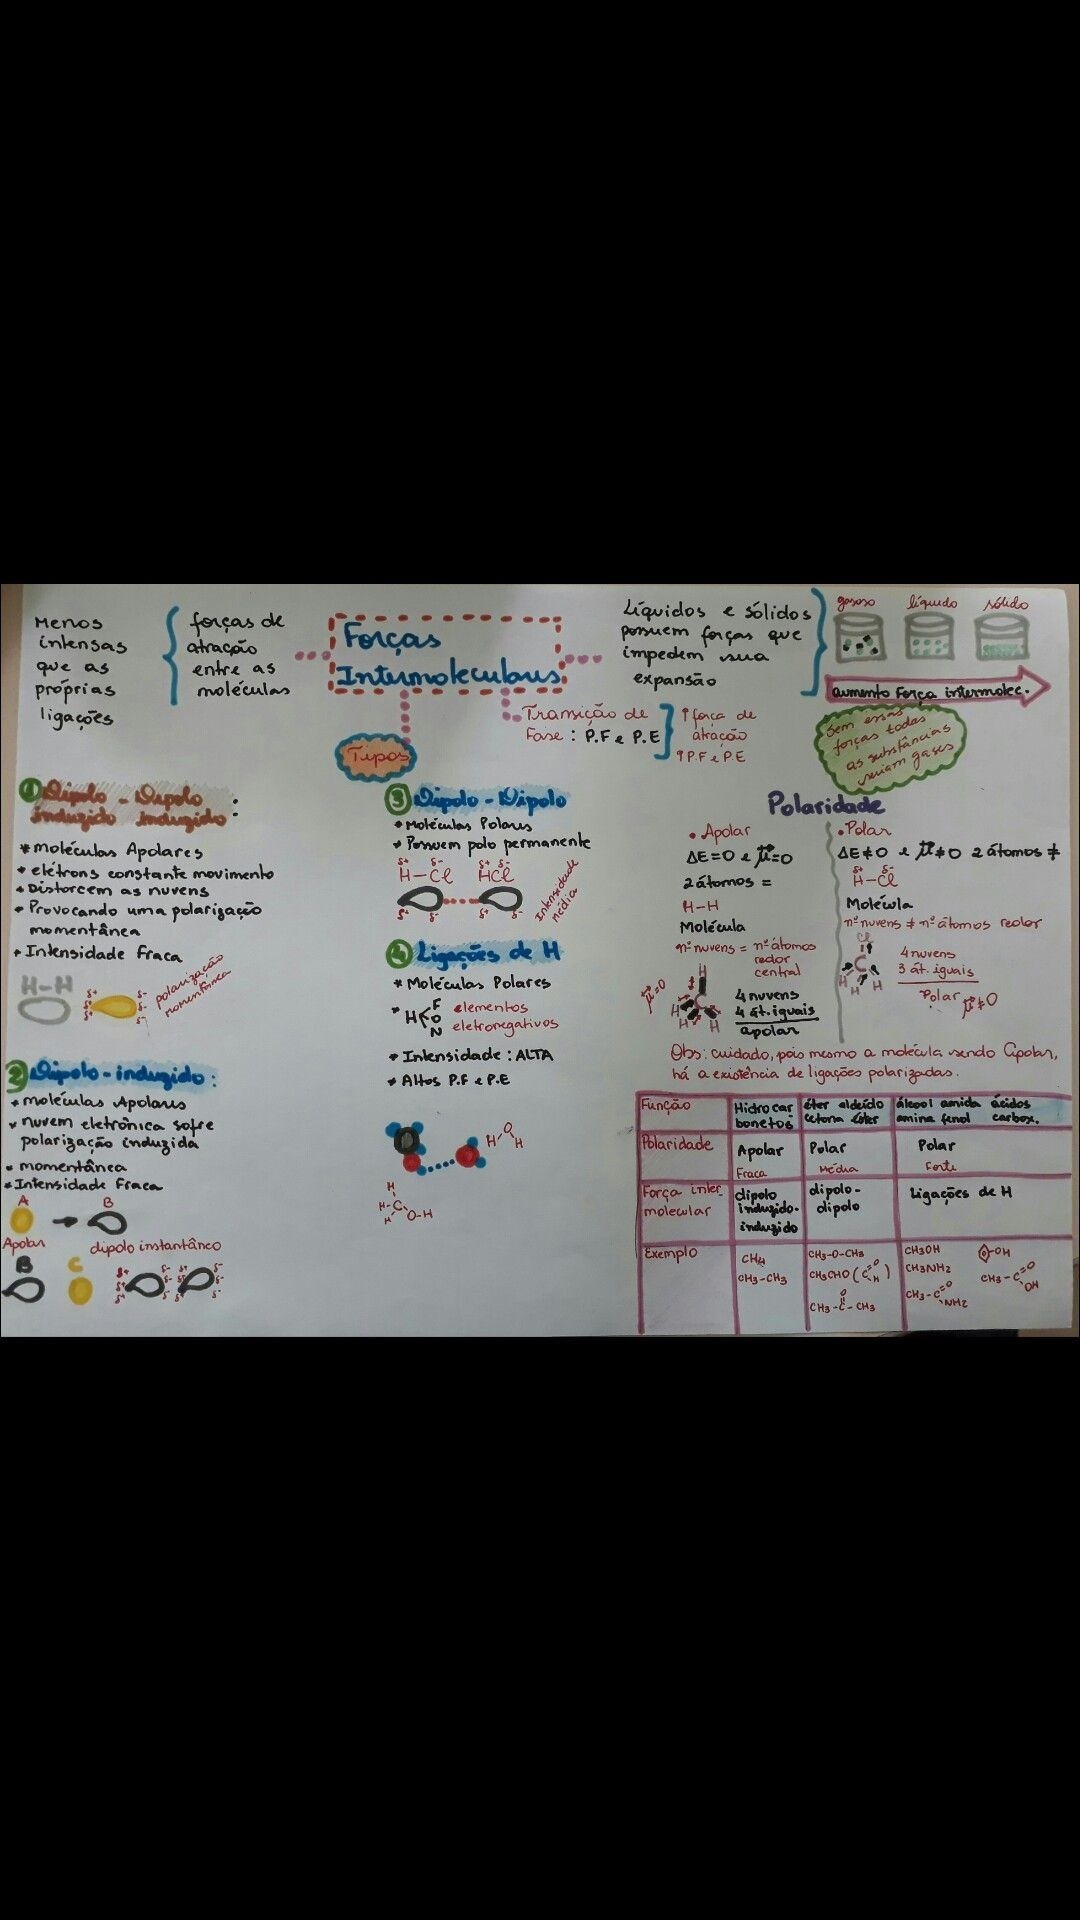 Menos
intensas
que as
próprias
ligações
forças de
atração
entre as
moléculas
Forças
Intermoleculares
Líquidos e sólidos
possuem forças que
impedem sua
expansão
gasoso líquido sólido
aumento Força intermolec.
Sem essas
forças todas
as substâncias
seriam gases
Transição de
Fase : P.F e P.E
↑ força de
atração
↑ P.F e P.E
Tipos
1 Dipolo - Dipolo
induzido induzido :
* moléculas Apolares
* elétrons constante movimento
* Distorcem as nuvens
* Provocando uma polarização
momentânea
* Intensidade Fraca
H-H
δ+ δ-
δ+ δ-
δ+ δ-
polarização
momentânea
2 Dipolo - induzido :
* moléculas Apolares
* nuvem eletrônica sofre
polarização induzida
* momentânea
* Intensidade Fraca
A B
Apolar dipolo instantâneo
B C
3 Dipolo - Dipolo
* Moléculas Polares
* Possuem polo permanente
δ+ δ- δ+ δ-
H-Cl HCl
δ+ δ- δ+ δ-
Intensidade
média
4 Ligações de H
* Moléculas Polares
* H F O N elementos
eletronegativos
* Intensidade : ALTA
* Altos P.F e P.E
H-O H
H
H-C O-H
H
Polaridade
• Apolar
ΔE=0 e μ=0
2 átomos =
H-H
Molécula
nº nuvens = nº átomos
redor
central
μ=0
H
C
H H H
4 nuvens
4 át. iguais
apolar
• Polar
ΔE≠0 e μ≠0 2 átomos ≠
δ+ δ-
H-Cl
Molécula
nº nuvens ≠ nº átomos redor
Cl
C
H H H
4 nuvens
3 át. iguais
Polar μ≠0
Obs: cuidado, pois mesmo a molécula sendo Apolar,
há a existência de ligações polarizadas.
Função Hidrocar éter aldeído álcool amida ácidos
bonetos cetona éster amina fenol carbox.
Polaridade Apolar Polar Polar
Fraca Média Forte
Força inter dipolo dipolo- Ligações de H
molecular induzido- dipolo
induzido
Exemplo CH4 CH3-O-CH3 CH3OH -OH
CH3-CH3 CH3CHO (C O H) CH3NH2 CH3-C O OH
O
CH3-C-CH3 CH3-C O NH2